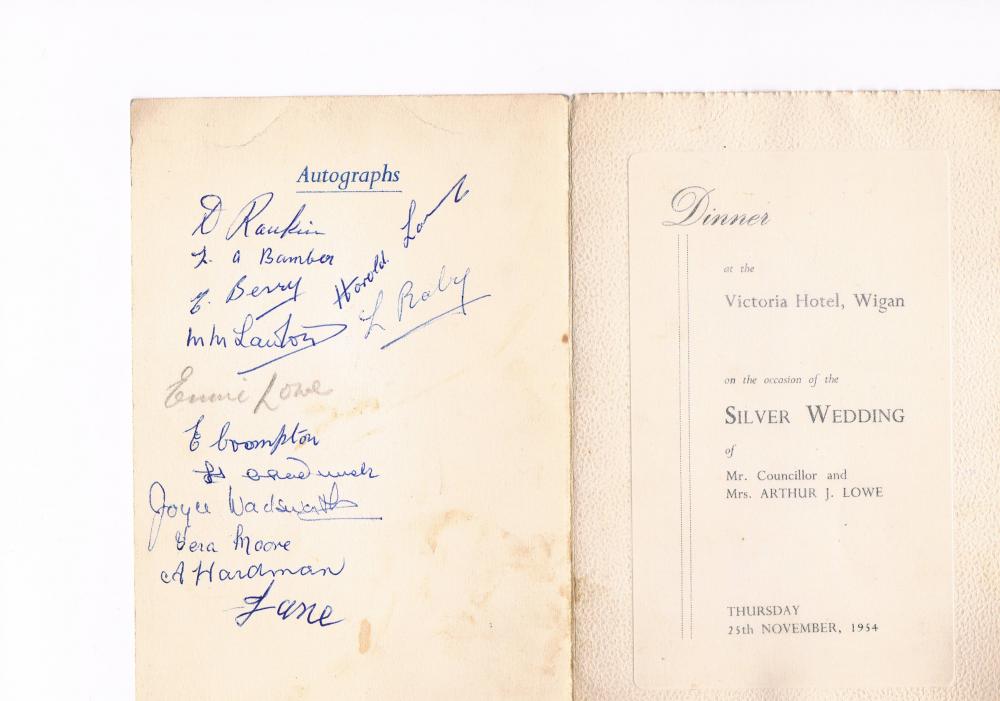 Autographs
D Rankin
L. A Bamber
E. Berry
Harold
L Raby
M M Lawton
Ennie Lowe
E Crompton
Joyce Wadsworth
Vera Moore
A Hardman
Lane
Dinner
at the
Victoria Hotel, Wigan
on the occasion of the
SILVER WEDDING
of
Mr. Councillor and
Mrs. ARTHUR J. LOWE
THURSDAY
25th NOVEMBER, 1954